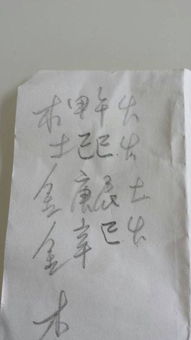 木甲午火
土己巳火
金庚辰土
金辛巳火
木